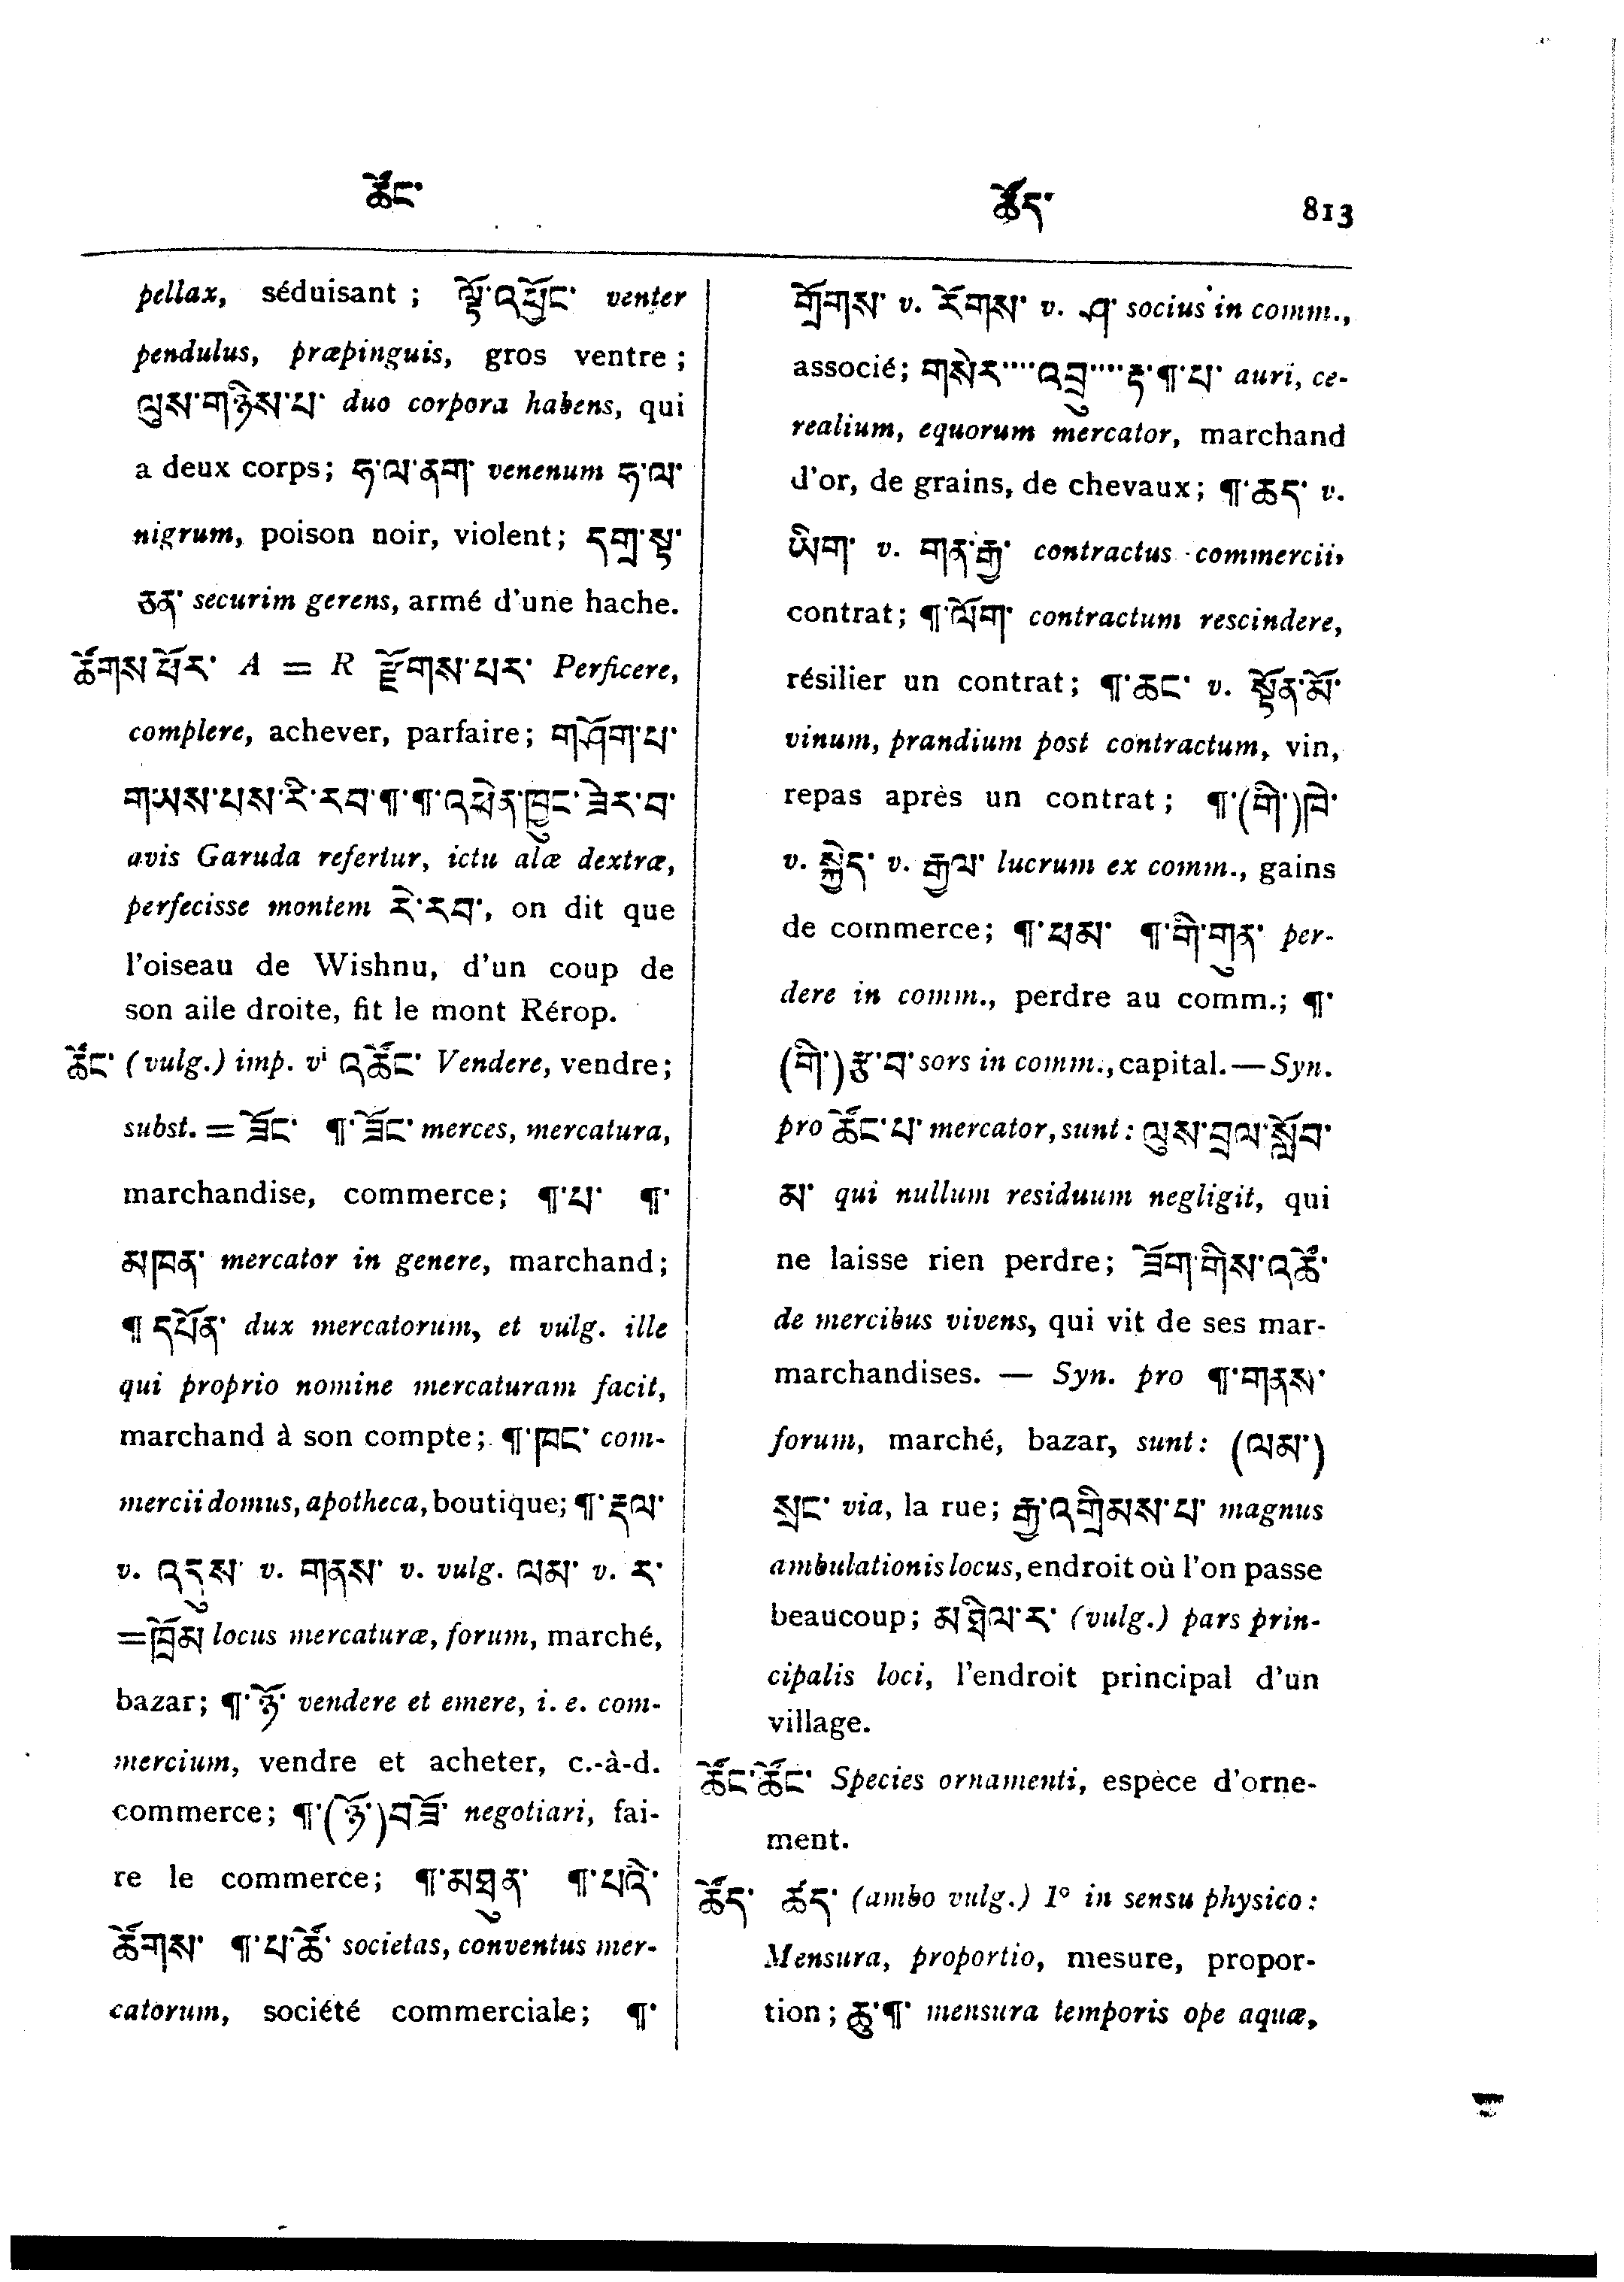 ཚོང་
ཚོད་ 813
pellax, séduisant ; ལྟོ་འཕྱོང་ venter
pendulus, præpinguis, gros ventre ;
ལུས་གཉིས་པ་ duo corpora habens, qui
a deux corps; ཧ་ལ་ནག་ venenum ཧ་ལ་
nigrum, poison noir, violent; དགྲ་སྟ་
ཅན་ securim gerens, armé d'une hache.
ཚོགས་ཕོར་ A = R རྫོགས་པར་ Perficere,
complere, achever, parfaire; གཤོག་པ་
གཡས་པས་རི་རབ་¶་¶་འཕེན་ཁྱུང་ཟེར་བ་
avis Garuda refertur, ictu alæ dextræ,
perfecisse montem རི་རབ་, on dit que
l'oiseau de Wishnu, d'un coup de
son aile droite, fit le mont Rérop.
ཚོང་ (vulg.) imp. vⁱ འཚོང་ Vendere, vendre;
subst. = ཟོང་ ¶་ཟོང་ merces, mercatura,
marchandise, commerce; ¶་པ་ ¶་
མཁན་ mercator in genere, marchand;
¶ དཔོན་ dux mercatorum, et vulg. ille
qui proprio nomine mercaturam facit,
marchand à son compte; ¶་ཁང་ com-
mercii domus, apotheca, boutique; ¶་རྡལ་
v. འདུས་ v. གནས་ v. vulg. ལམ་ v. ར་
=ཁྲོམ locus mercaturæ, forum, marché,
bazar; ¶་ཉོ་ vendere et emere, i. e. com-
mercium, vendre et acheter, c.-à-d.
commerce; ¶་(ཉོ་)བཟོ་ negotiari, fai-
re le commerce; ¶་མཐུན་ ¶་པའི་
ཚོགས་ ¶་པ་ཚོ་ societas, conventus mer-
catorum, société commerciale; ¶་
གྲོགས་ v. རོགས་ v. ཤ་ socius in comm.,
associé; གསེར་...་འབྲུ་...་རྟ་¶་པ་ auri, ce-
realium, equorum mercator, marchand
d'or, de grains, de chevaux; ¶་ཆད་ v.
ཡིག་ v. གན་རྒྱ་ contractus commercii,
contrat; ¶་ལོག་ contractum rescindere,
résilier un contrat; ¶་ཆང་ v. སྟོན་མོ་
vinum, prandium post contractum, vin,
repas après un contrat; ¶་(གི་)ཁེ་
v. སྐྱེད་ v. རྒྱལ་ lucrum ex comm., gains
de commerce; ¶་ཕམ་ ¶་གི་གུན་ per-
dere in comm., perdre au comm.; ¶་
(གི་)རྩ་བ་ sors in comm., capital. — Syn.
pro ཚོང་པ་ mercator, sunt: ལུས་བྲལ་སློབ་
མ་ qui nullum residuum negligit, qui
ne laisse rien perdre; ཟོག་གིས་འཚོ་
de mercibus vivens, qui vit de ses mar-
marchandises. — Syn. pro ¶་གནས་
forum, marché, bazar, sunt: (ལམ་)
སྲང་ via, la rue; རྒྱ་འགྲིམས་པ་ magnus
ambulationis locus, endroit où l'on passe
beaucoup; མཐིལ་ར་ (vulg.) pars prin-
cipalis loci, l'endroit principal d'un
village.
ཚོང་ཚོང་ Species ornamenti, espèce d'orne-
ment.
ཚོད་ ཚད་ (ambo vulg.) 1° in sensu physico:
Mensura, proportio, mesure, propor-
tion; ཆུ་¶་ mensura temporis ope aquæ,